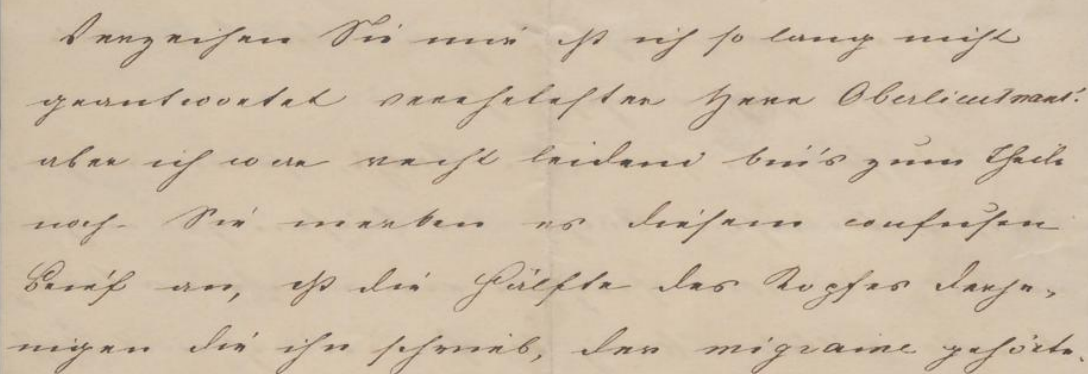 Verzeihen Sie mir dß ich so lang nicht
geantwortet verehrtester Herr Oberlieutnant!
aber ich war recht leidend bin's zum Theile
noch. Sie merken es diesem confusen
Brief an, dß die Hälfte des Kopfes derje-
nigen die ihn schrieb, der migraine gehörte.